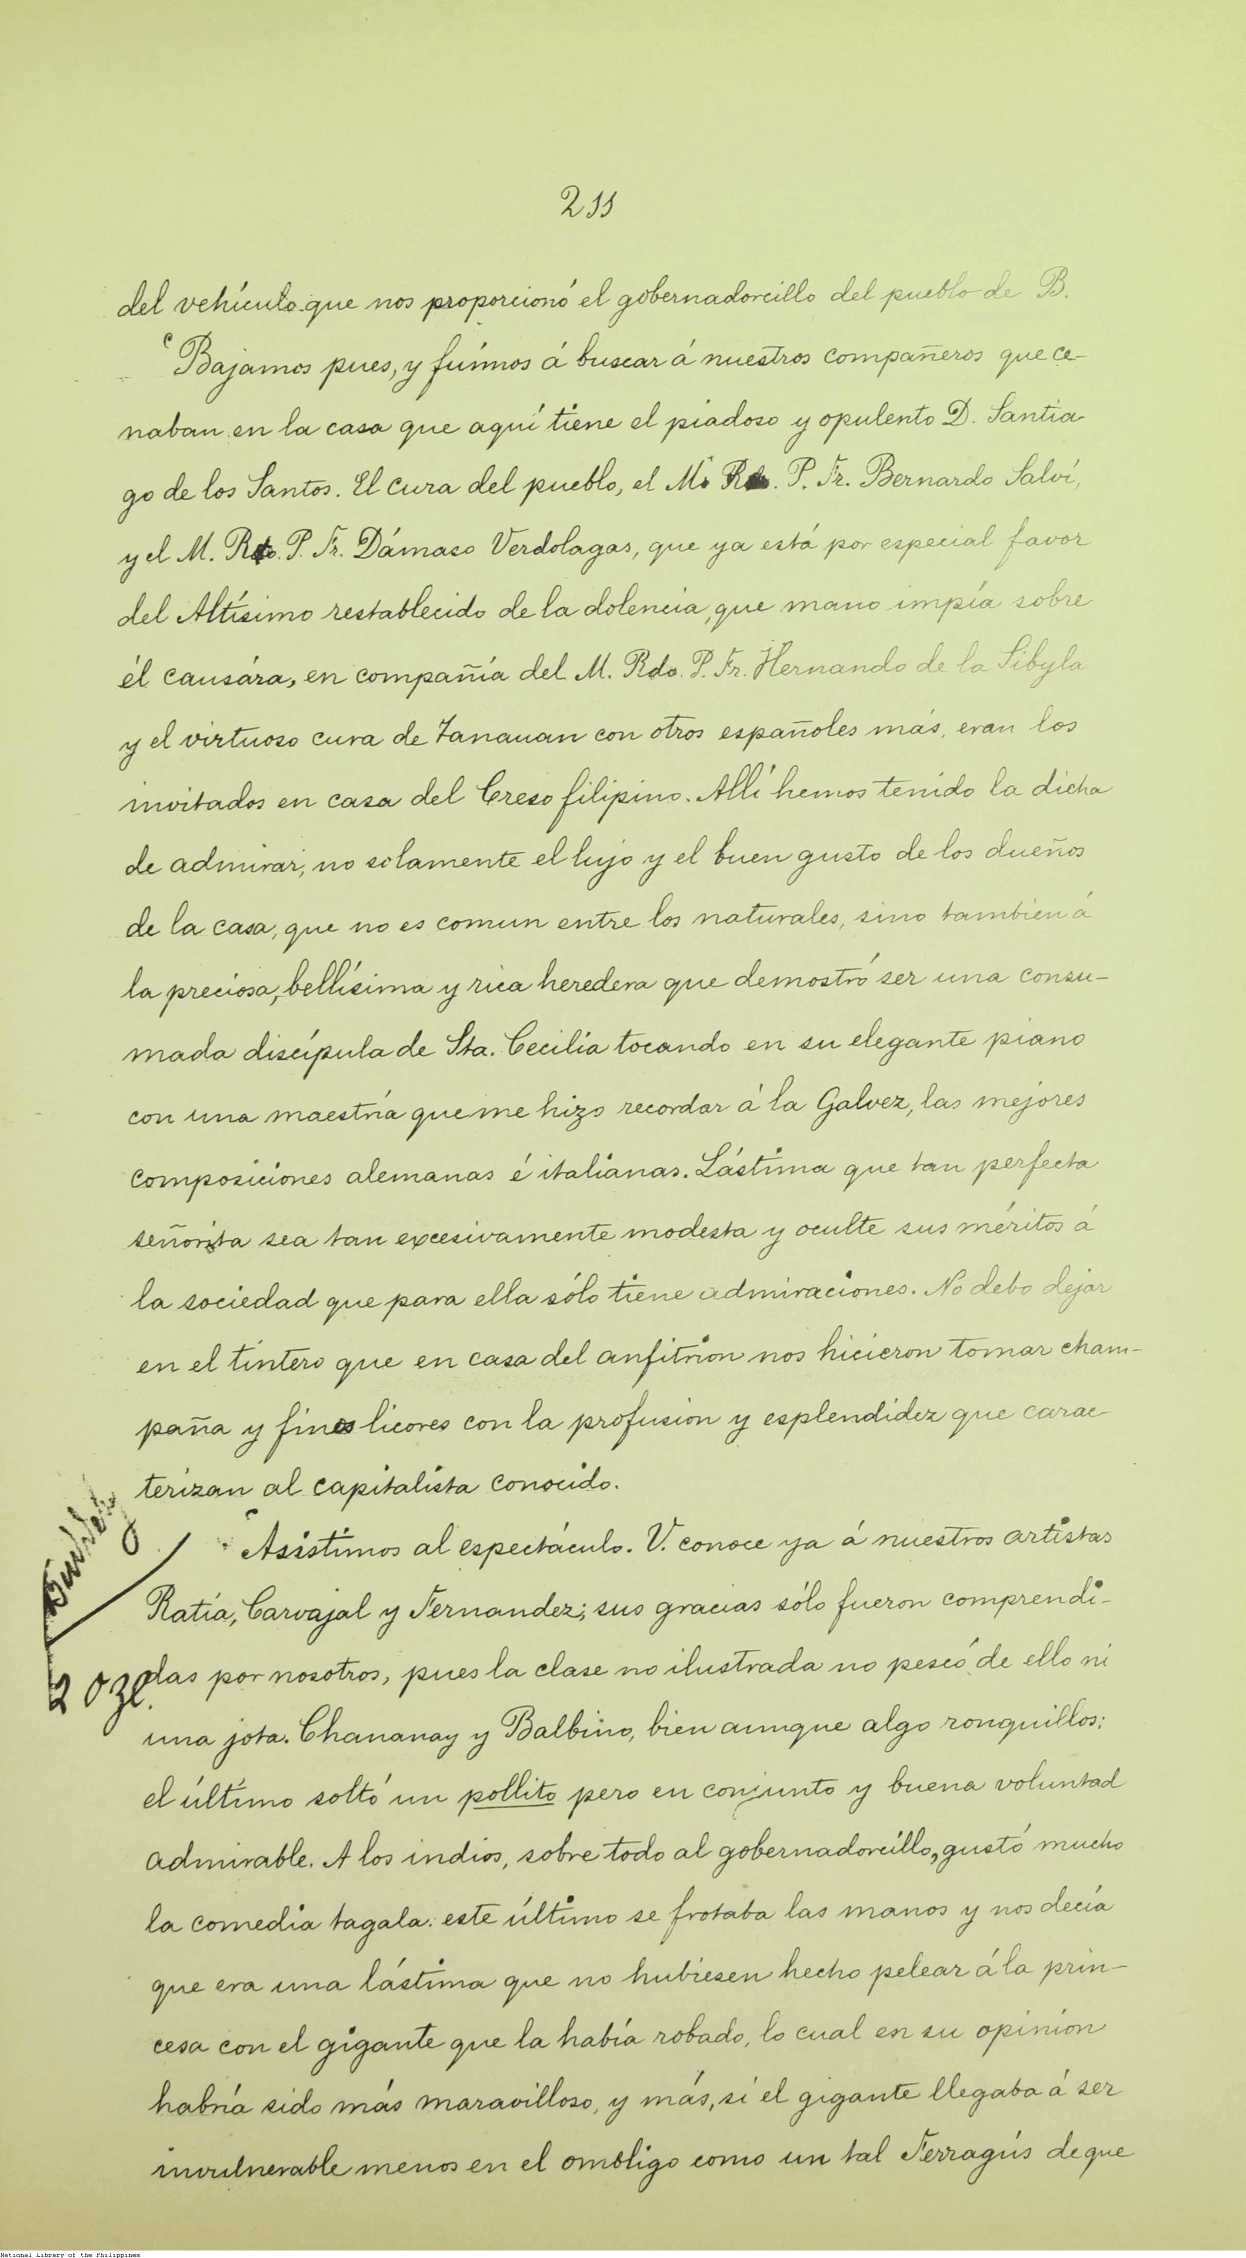 211
del vehículo que nos proporcionó el gobernadorcillo del pueblo de B.
"Bajamos pues, y fuimos á buscar á nuestros compañeros que ce-
naban en la casa que aquí tiene el piadoso y opulento D. Santia-
go de los Santos. El cura del pueblo, el M. R. P. Fr. Bernardo Salví,
y el M. R. P. Fr. Dámaso Verdolagas, que ya está por especial favor
del Altísimo restablecido de la dolencia, que mano impía sobre
él causára, en compañía del M. Rdo. P. Fr. Hernando de la Sibyla
y el virtuoso cura de Tanauan con otros españoles más, eran los
invitados en casa del Creso filipino. Allí hemos tenido la dicha
de admirar, no solamente el lujo y el buen gusto de los dueños
de la casa, que no es comun entre los naturales, sino tambien á
la preciosa, bellísima y rica heredera que demostró ser una consu-
mada discípula de Sta. Cecilia tocando en su elegante piano
con una maestría que me hizo recordar á la Galvez, las mejores
composiciones alemanas é italianas. Lástima que tan perfecta
señorita sea tan excesivamente modesta y oculte sus méritos á
la sociedad que para ella sólo tiene admiraciones. No debo dejar
en el tintero que en casa del anfitrion nos hicieron tomar cham-
paña y finos licores con la profusion y esplendidez que carac-
terizan al capitalista conocido.
"Asistimos al espectáculo. V. conoce ya á nuestros artistas
Ratia, Carvajal y Fernandez; sus gracias sólo fueron comprendi-
das por nosotros, pues la clase no ilustrada no pescó de ello ni
una jota. Chananay y Balbino, bien aunque algo ronquillos;
el último soltó un pollito pero en conjunto y buena voluntad
admirable. A los indios, sobre todo al gobernadorcillo, gustó mucho
la comedia tagala: este último se frotaba las manos y nos decía
que era una lástima que no hubiesen hecho pelear á la prin-
cesa con el gigante que la había robado, lo cual en su opinion
habría sido más maravilloso, y más, si el gigante llegaba á ser
invulnerable menos en el ombligo como un tal Ferragús de que
National Library of the Philippines